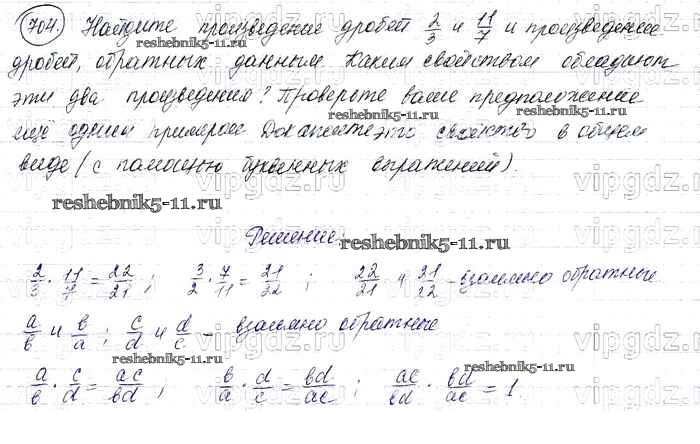 704. Найдите произведение дробей 2/3 и 11/7 и произведение
reshebnik5-11.ru
дробей, обратных данным. Каким свойством обладают
эти два произведения? Проверьте ваше предположение
ещё одним примером. Докажите это свойство в общем
виде (с помощью буквенных выражений).
reshebnik5-11.ru
Решение:
reshebnik5-11.ru
2/3 · 11/7 = 22/21 ; 3/2 · 7/11 = 21/22 ; 22/21 и 21/22 - взаимно обратные
a/b и b/a ; c/d и d/c - взаимно обратные
reshebnik5-11.ru
a/b · c/d = ac/bd ; b/a · d/c = bd/ac ; ac/bd · bd/ac = 1.
reshebnik5-11.ru
vipgdz.ru